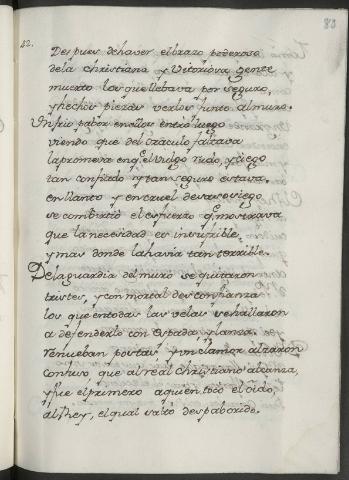 83
22.
Despues dehaver elbrazo poderoso
dela christiana y Vitoriosa gente
muerto los quellebava por seguro,
y hechos piezas verlos junto almuro.
Un frio pabor enellos entró luego
viendo que del oráculo faltava
lapromesa en q.e el vulgo rudo, y ciego
tan confiado y tan seguro estava.
enllanto y en cruel desasosiego
se combirtió el esfuerzo q.e mostrava
que la necesidad es insufrible,
y mas donde lahavia tan terrible.
Dela guardia del muro se quitaron
tristes, y con mortal desconfianza
los que entodas las velas se hallaron
a defenderlo con espada y lanza.
renueban postas y un clamor alzaron
confuso que al real christiano alcanza,
y fue el primero aquien tocó el oído,
al Rey, el qual saltó despaborido.